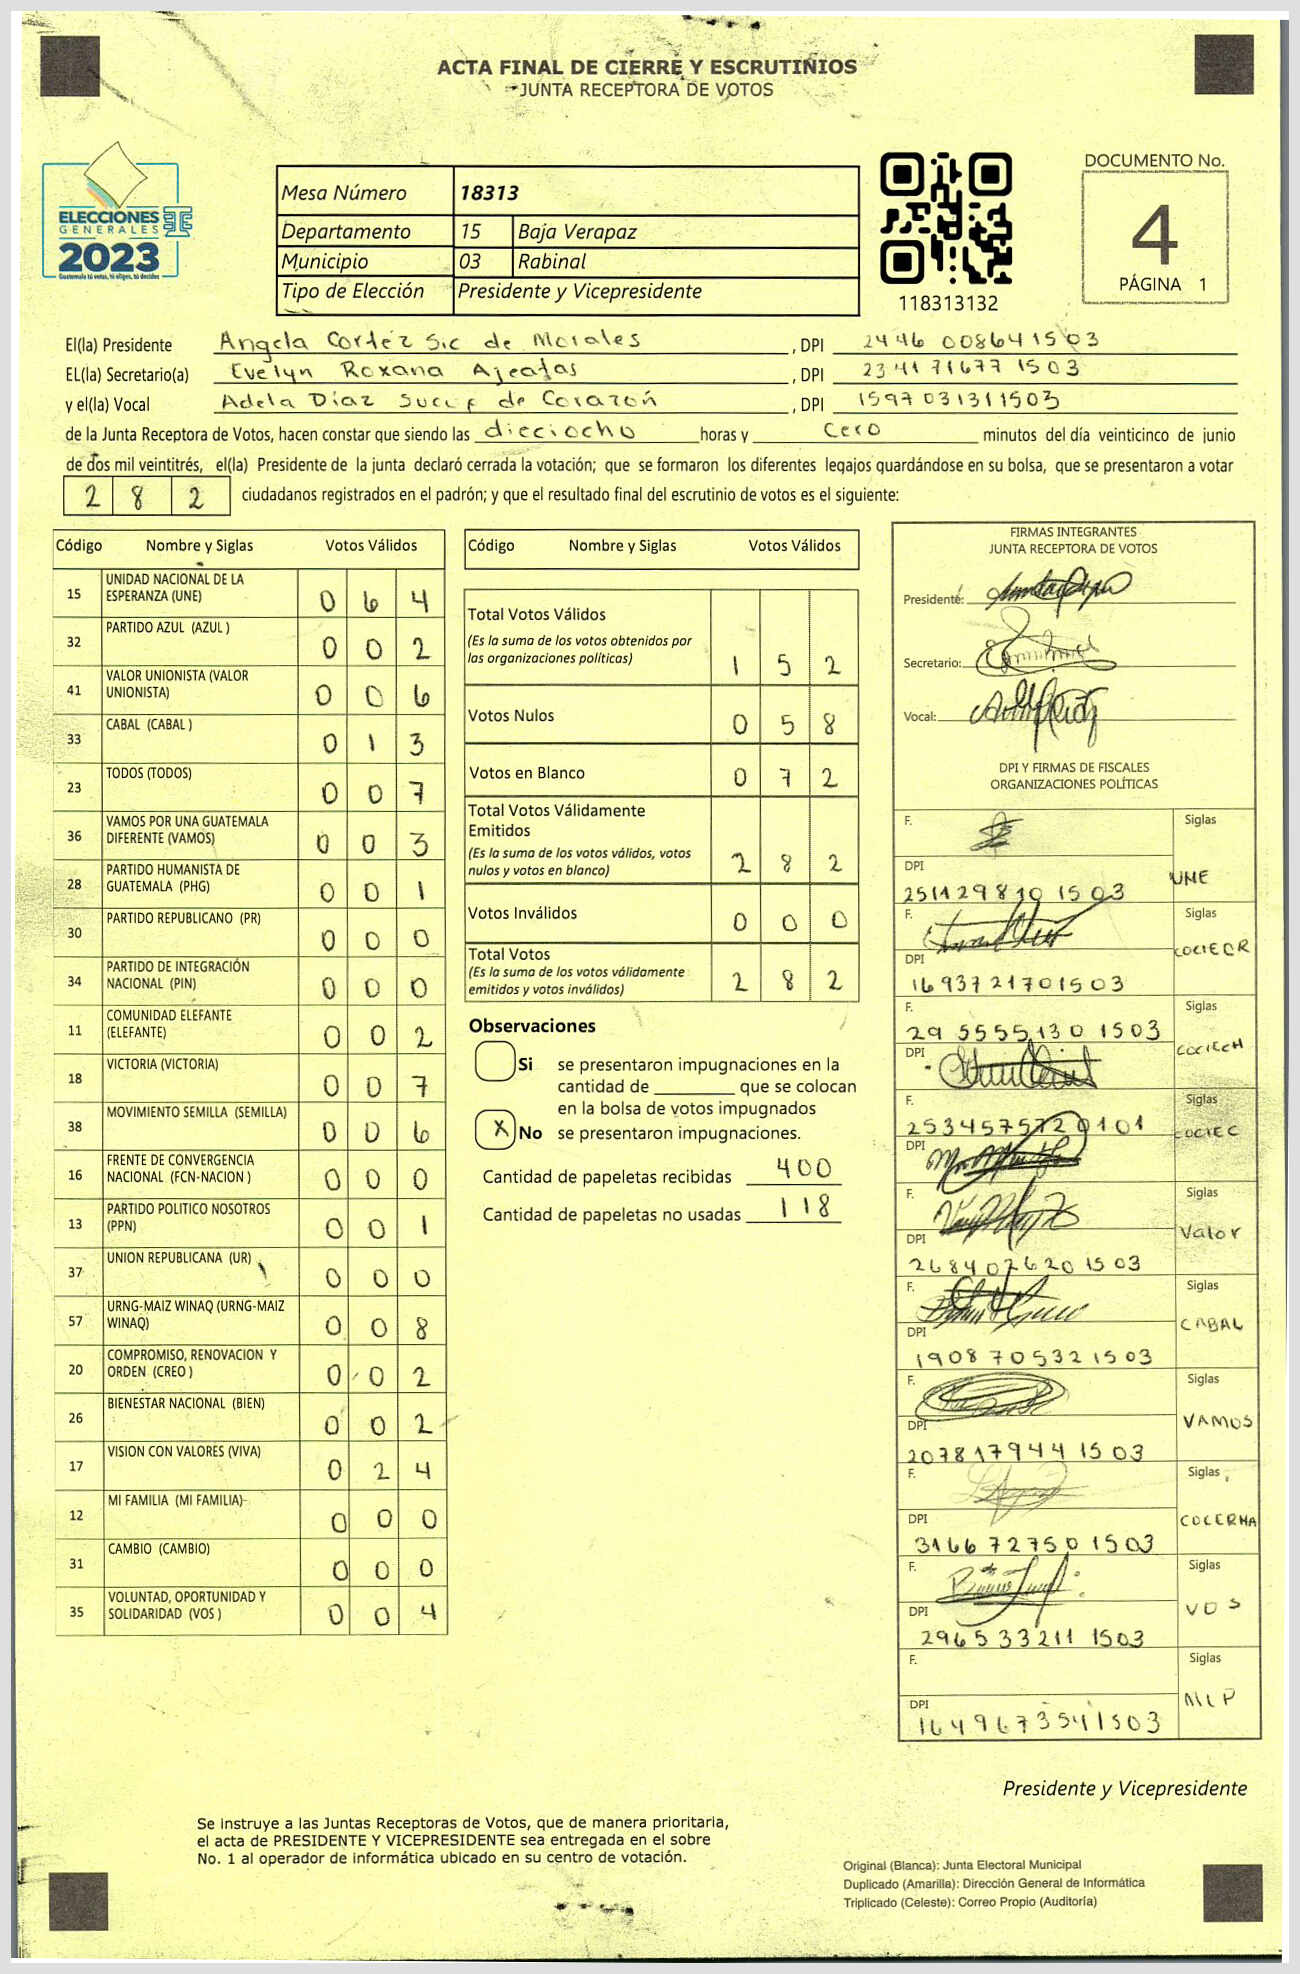 ACTA FINAL DE CIERRE Y ESCRUTINIOS
JUNTA RECEPTORA DE VOTOS
ELECCIONES
GENERALES
2023
Guatemala tú votas, tú eliges, tú decides
Mesa Número 18313
Departamento 15 Baja Verapaz
Municipio 03 Rabinal
Tipo de Elección Presidente y Vicepresidente
118313132
DOCUMENTO No.
4
PÁGINA 1
El(la) Presidente Angela Cortéz Sic de Morales, DPI 2446 00864 1503
EL(la) Secretario(a) Evelyn Roxana Ajeatas, DPI 2341 71677 1503
y el(la) Vocal Adela Díaz de Corazón, DPI 1597 03131 1503
de la Junta Receptora de Votos, hacen constar que siendo las dieciocho horas y cero minutos del día veinticinco de junio
de dos mil veintitrés, el(la) Presidente de la junta declaró cerrada la votación; que se formaron los diferentes legajos guardándose en su bolsa, que se presentaron a votar
2 8 2 ciudadanos registrados en el padrón; y que el resultado final del escrutinio de votos es el siguiente:
Código Nombre y Siglas Votos Válidos
15 UNIDAD NACIONAL DE LA ESPERANZA (UNE) 0 6 4
32 PARTIDO AZUL (AZUL ) 0 0 2
41 VALOR UNIONISTA (VALOR UNIONISTA) 0 0 6
33 CABAL (CABAL ) 0 1 3
23 TODOS (TODOS) 0 0 7
36 VAMOS POR UNA GUATEMALA DIFERENTE (VAMOS) 0 0 3
28 PARTIDO HUMANISTA DE GUATEMALA (PHG) 0 0 1
30 PARTIDO REPUBLICANO (PR) 0 0 0
34 PARTIDO DE INTEGRACIÓN NACIONAL (PIN) 0 0 0
11 COMUNIDAD ELEFANTE (ELEFANTE) 0 0 2
18 VICTORIA (VICTORIA) 0 0 7
38 MOVIMIENTO SEMILLA (SEMILLA) 0 0 6
16 FRENTE DE CONVERGENCIA NACIONAL (FCN-NACION ) 0 0 0
13 PARTIDO POLITICO NOSOTROS (PPN) 0 0 1
37 UNION REPUBLICANA (UR) 0 0 0
57 URNG-MAIZ WINAQ (URNG-MAIZ WINAQ) 0 0 8
20 COMPROMISO, RENOVACION Y ORDEN (CREO ) 0 0 2
26 BIENESTAR NACIONAL (BIEN) 0 0 2
17 VISION CON VALORES (VIVA) 0 2 4
12 MI FAMILIA (MI FAMILIA) 0 0 0
31 CAMBIO (CAMBIO) 0 0 0
35 VOLUNTAD, OPORTUNIDAD Y SOLIDARIDAD (VOS ) 0 0 4
Código Nombre y Siglas Votos Válidos
Total Votos Válidos
(Es la suma de los votos obtenidos por
las organizaciones políticas) 1 5 2
Votos Nulos 0 5 8
Votos en Blanco 0 7 2
Total Votos Válidamente
Emitidos
(Es la suma de los votos válidos, votos
nulos y votos en blanco) 2 8 2
Votos Inválidos 0 0 0
Total Votos
(Es la suma de los votos válidamente
emitidos y votos inválidos) 2 8 2
Observaciones
Si se presentaron impugnaciones en la
cantidad de ________ que se colocan
en la bolsa de votos impugnados
X No se presentaron impugnaciones.
Cantidad de papeletas recibidas 400
Cantidad de papeletas no usadas 118
FIRMAS INTEGRANTES
JUNTA RECEPTORA DE VOTOS
Presidente:
Secretario:
Vocal:
DPI Y FIRMAS DE FISCALES
ORGANIZACIONES POLÍTICAS
F. Siglas
DPI 251129810 1503 UNE
F. Siglas
DPI 1693721701503 COCIECR
F. Siglas
29 5555130 1503
DPI COCIECH
F. Siglas
2534575720101
DPI COCIEC
F. Siglas
DPI 268407620 1503 Valor
F. Siglas
DPI 1908 70532 1503 CABAL
F. Siglas
DPI 207817944 1503 VAMOS
F. Siglas
DPI 3166 72750 1503 COCERHA
F. Siglas
DPI 2965 33211 1503 VOS
F. Siglas
DPI 1649673541503 MLP
Presidente y Vicepresidente
Se instruye a las Juntas Receptoras de Votos, que de manera prioritaria,
el acta de PRESIDENTE Y VICEPRESIDENTE sea entregada en el sobre
No. 1 al operador de informática ubicado en su centro de votación.
Original (Blanca): Junta Electoral Municipal
Duplicado (Amarilla): Dirección General de Informática
Triplicado (Celeste): Correo Propio (Auditoría)